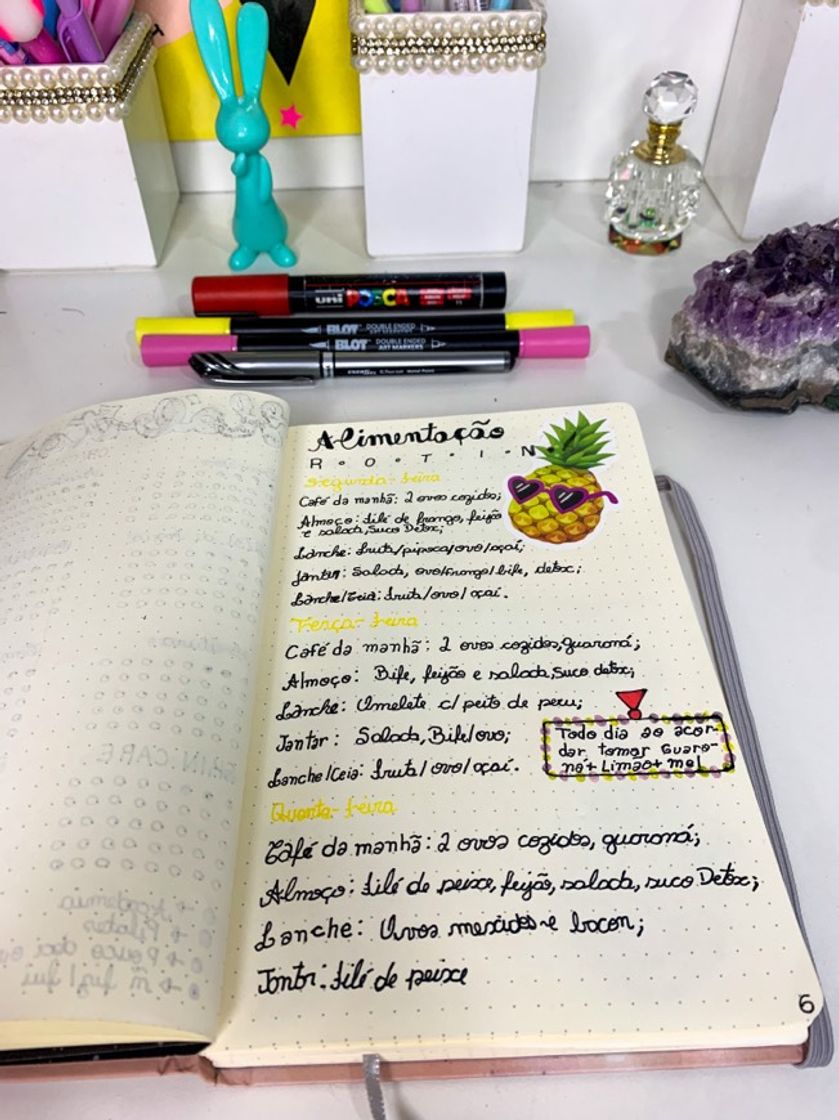 uni POSCA
BLOT DOUBLE ENDED ART MARKERS
BLOT DOUBLE ENDED ART MARKERS
Alimentação
R.O.T.I.N
Segunda-feira
Café da manhã: 2 ovos cozidos;
Almoço: filé de frango, feijão
e salada, suco Detox;
Lanche: fruta/pipoca/ovo/açaí;
Jantar: Salada, ovo/frango/bife, detox;
Lanche/Ceia: fruta/ovo/açaí.
Terça-feira
Café da manhã: 2 ovos cozidos, guaraná;
Almoço: Bife, feijão e salada, suco detox;
Lanche: Omelete c/ peito de peru;
Jantar: Salada, Bife/ovo;
Lanche/Ceia: fruta/ovo/açaí.
Todo dia ao acor-
dar tomar Guara-
ná + Limão + mel
Quarta-feira
Café da manhã: 2 ovos cozidos, guaraná;
Almoço: filé de peixe, feijão, salada, suco Detox;
Lanche: Ovos mexidos e bacon;
Jantar: filé de peixe
6
SKIN CARE
→ Academia
→ Pilates